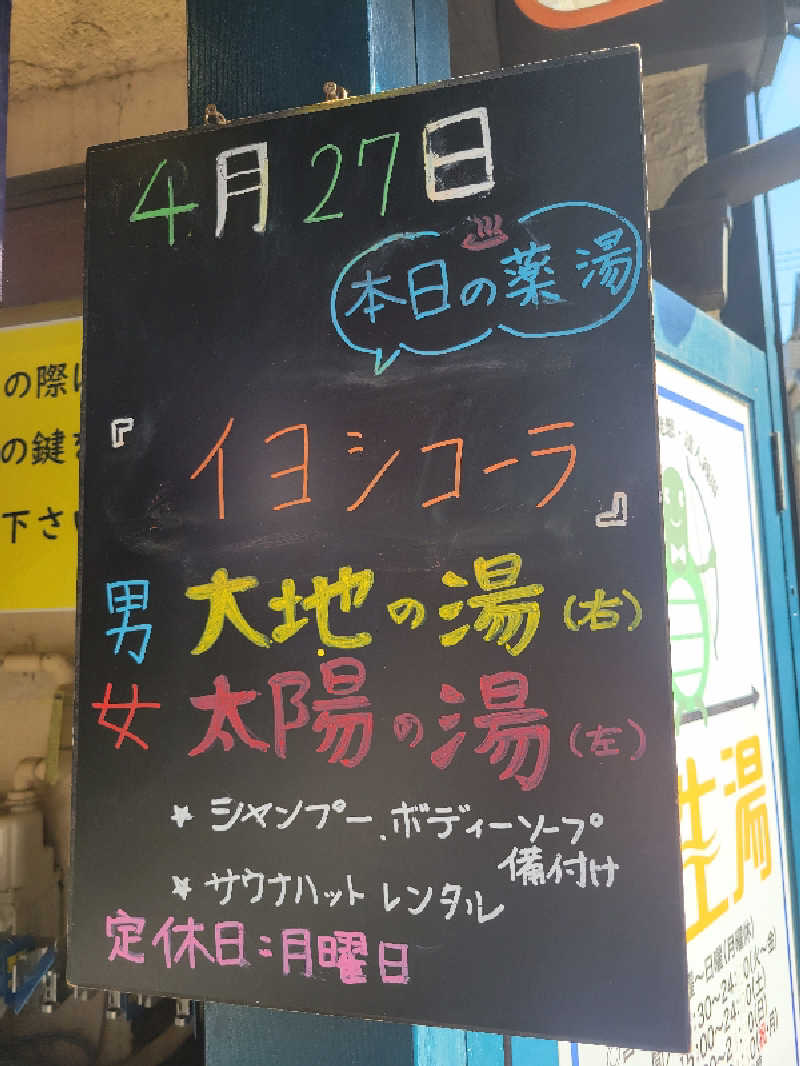 4月27日
本日の薬湯
『イヨシコーラ』
男 大地の湯(右)
女 太陽の湯(左)
★ シャンプー、ボディーソープ
備付け
★ サウナハット レンタル
定休日：月曜日
の際
の鍵
下さ
湯